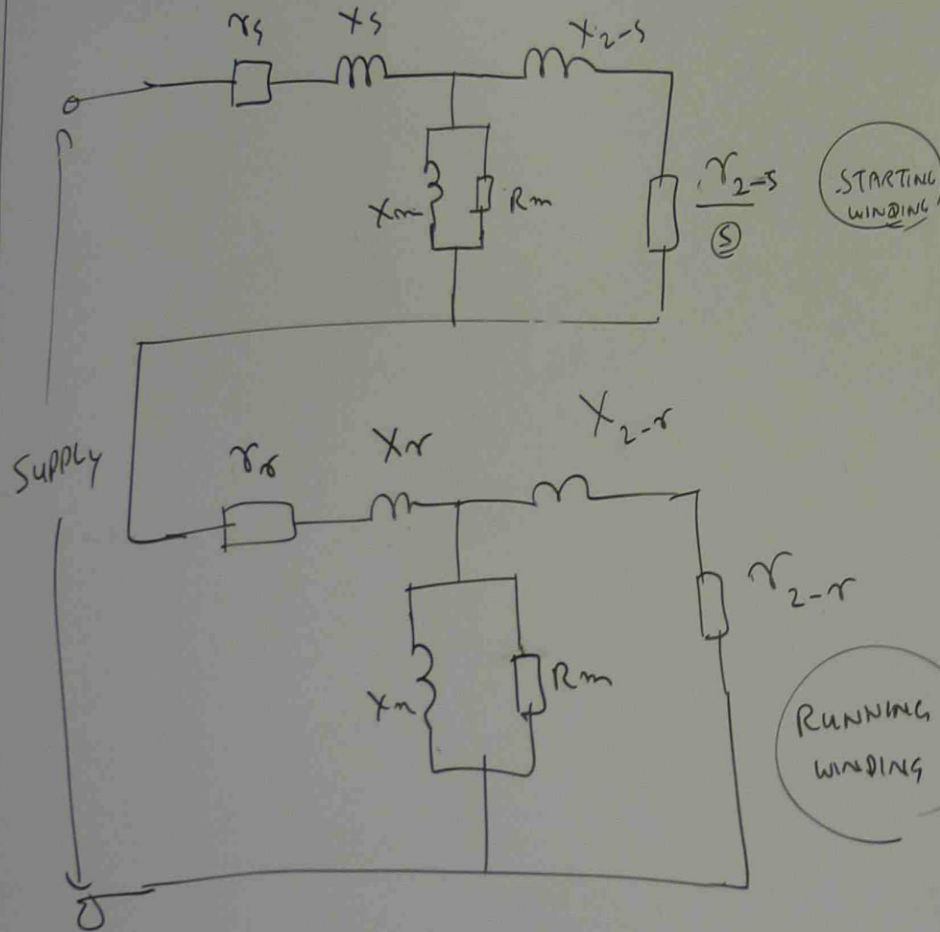 rs
Xs
X2-s
Xm
Rm
r2-s
S
STARTING
WINDING
SUPPLY
rr
Xr
X2-r
Xm
Rm
r2-r
RUNNING
WINDING